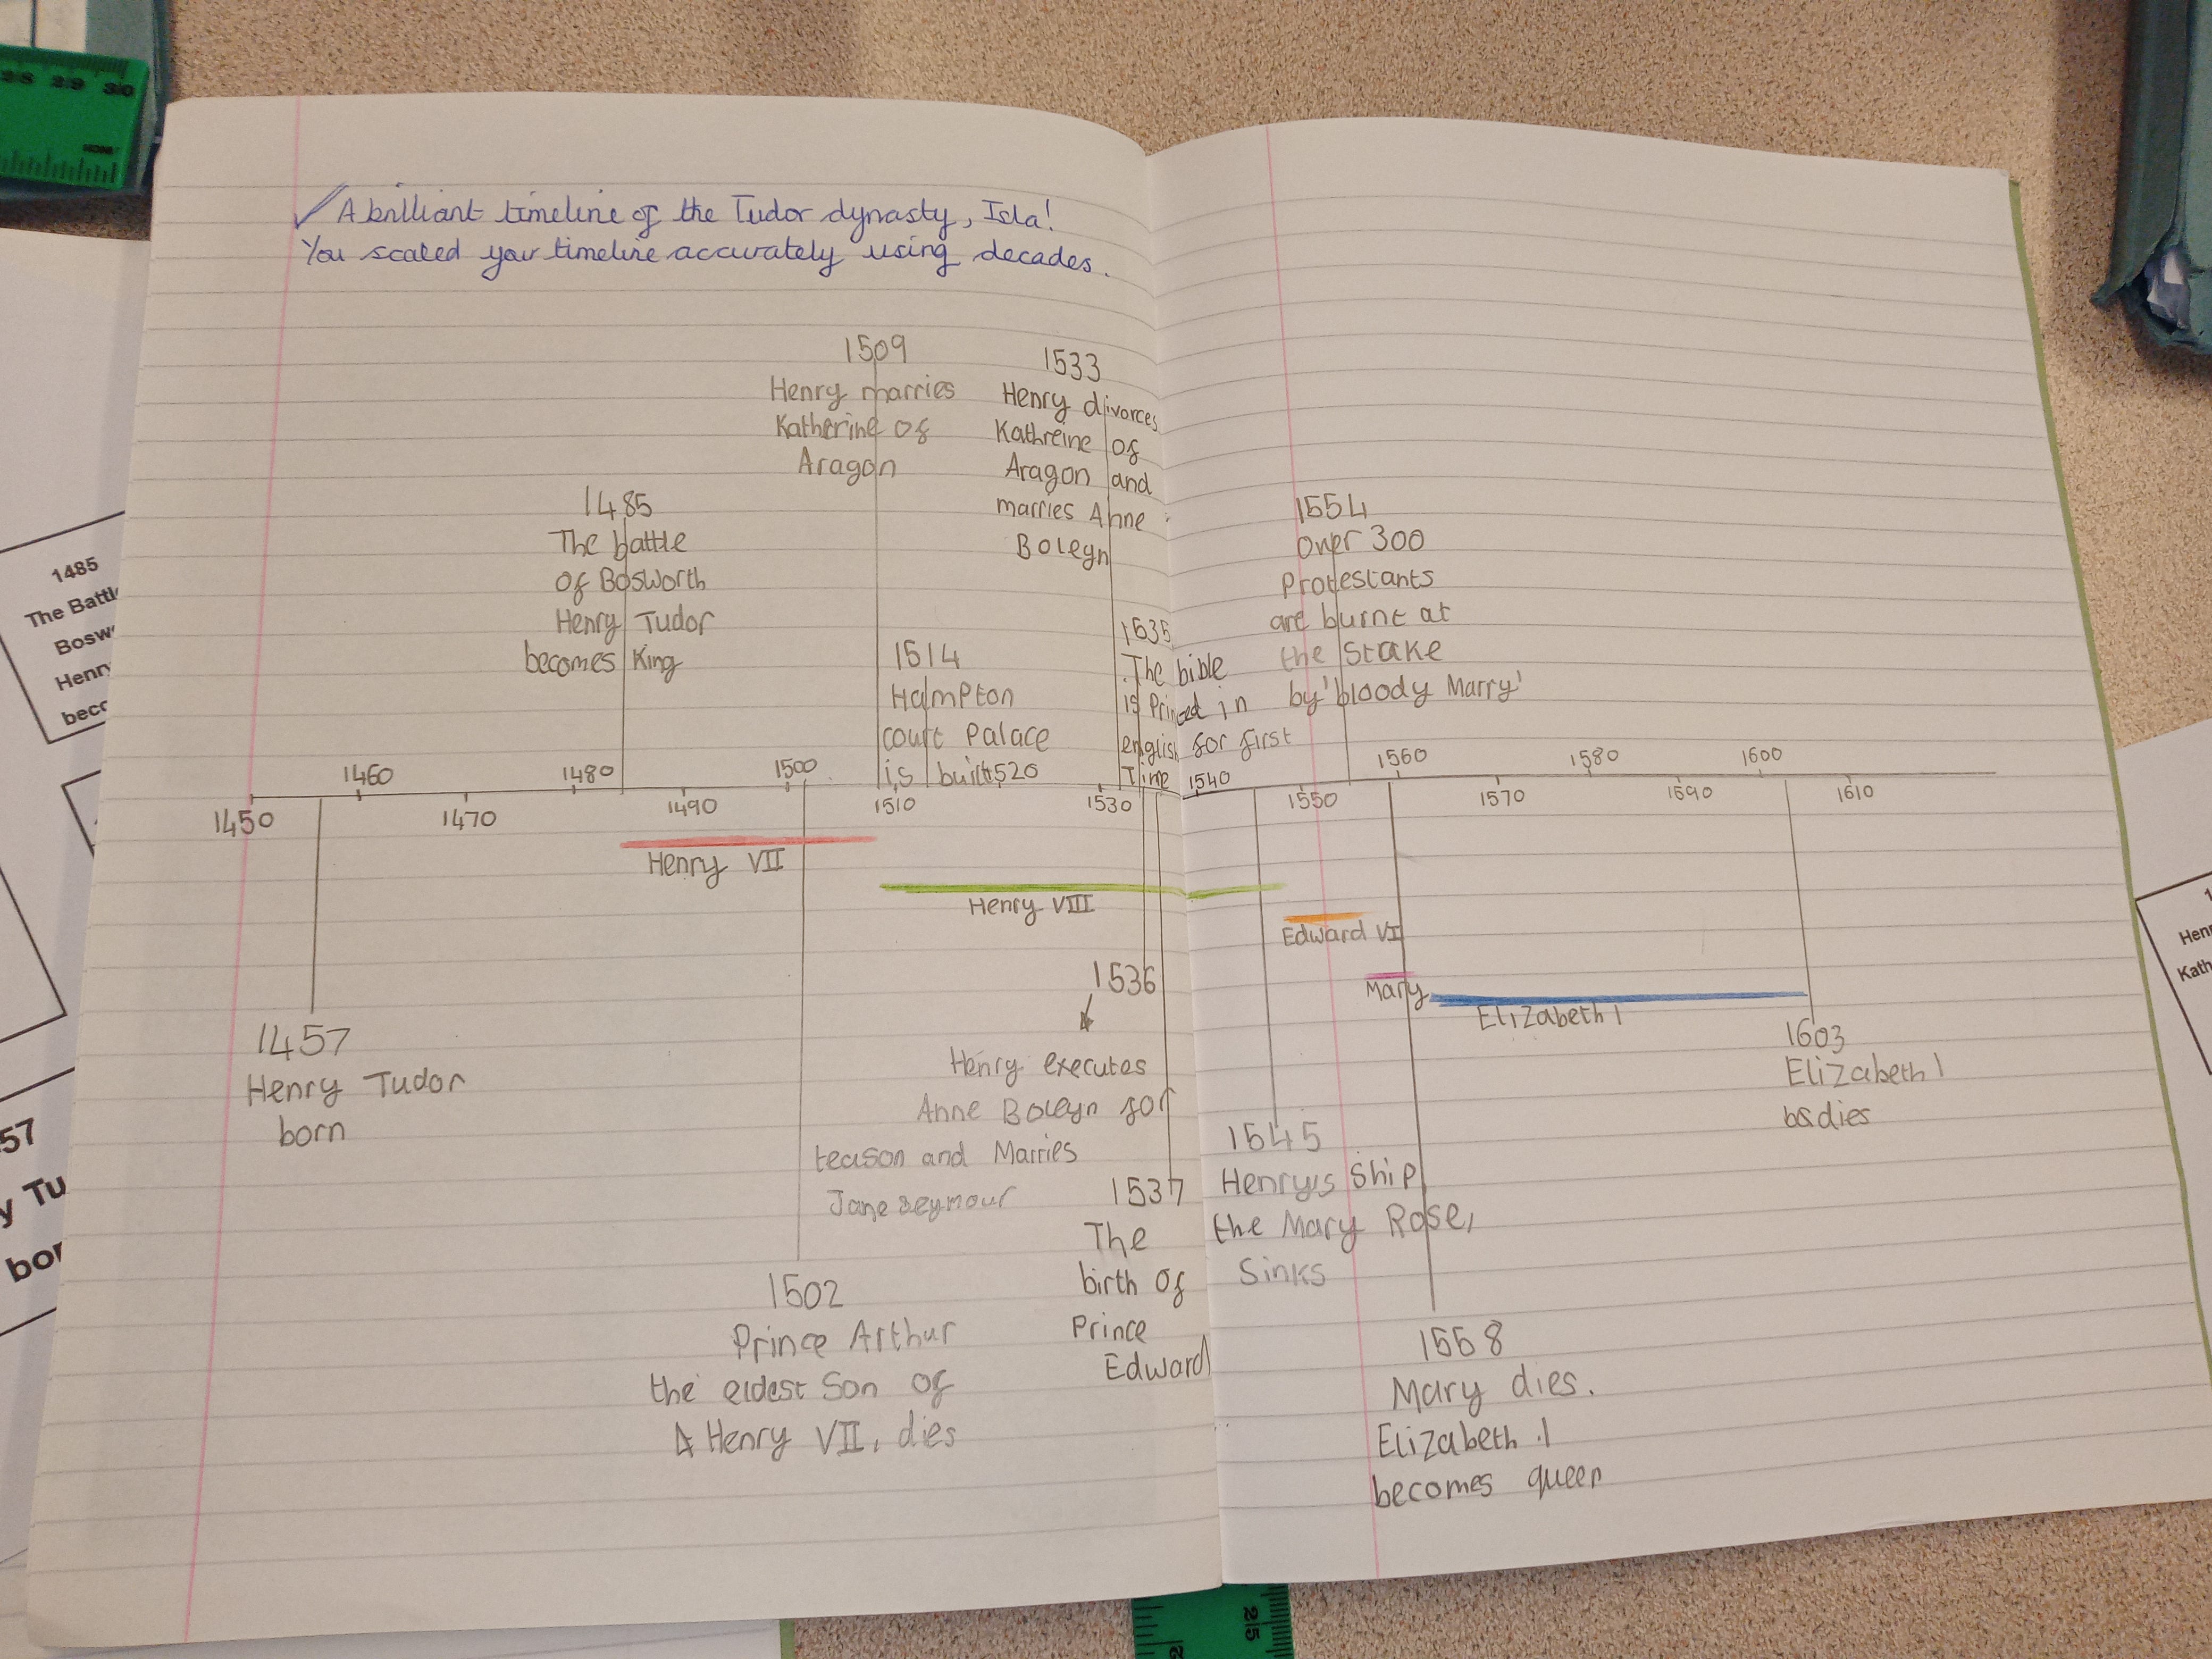 28 29 30
✓ A brilliant timeline of the Tudor dynasty, Isla!
You scaled your timeline accurately using decades.
1509
Henry marries
Katherine of
Aragon
1533
Henry divorces
Kathreine of
Aragon and
marries Anne
Boleyn
1485
The battle
of Bosworth
Henry Tudor
becomes King
1514
Hampton
court Palace
is built
1535
The bible
is Prined in
english for first
Time
1554
over 300
Protestants
are burnt at
the Stake
by 'bloody Marry'
1450
1460
1470
1480
1490
1500
1510
1520
1530
1540
1550
1560
1570
1580
1590
1600
1610
Henry VII
Henry VIII
Edward VI
Mary
Elizabeth I
1457
Henry Tudor
born
1502
Prince Arthur
the eldest Son of
Henry VII, dies
1536
Henry executes
Anne Boleyn for
teason and Marries
Jane seymour
1537
The
birth of
Prince
Edward
1545
Henry's Ship,
the Mary Rose,
Sinks
1558
Mary dies.
Elizabeth I
becomes queen
1603
Elizabeth I
dies
1485
The Battle
Bosw
Henry
beco
57
y Tu
bor
Henr
Kath
25